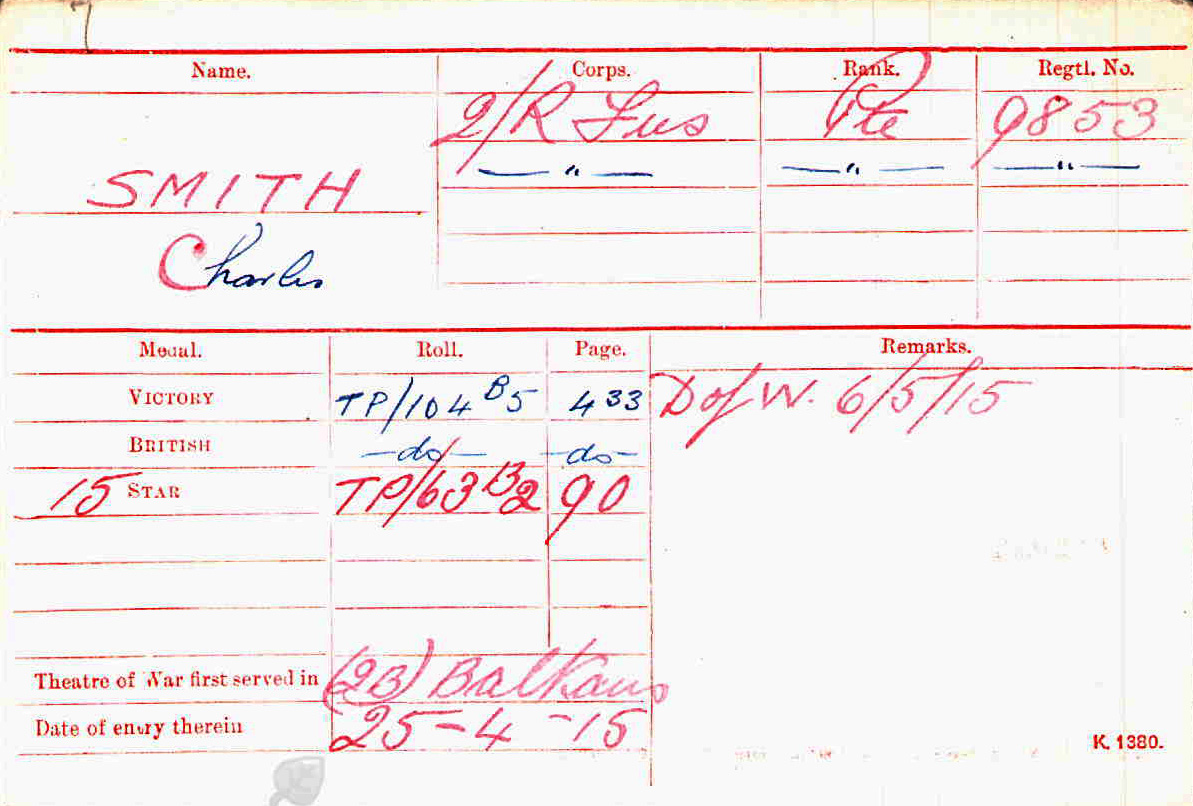 Name. Corps. Rank. Regtl. No.
2/R Fus Pte 9853
SMITH —"— —"— —"—
Charles
Medal. Roll. Page. Remarks.
VICTORY TP/104 B5 433 D of W. 6/5/15
BRITISH —do— —do—
15 STAR TP/63 B2 90
Theatre of War first served in (2B) Balkans
Date of entry therein 25-4-15
K. 1380.